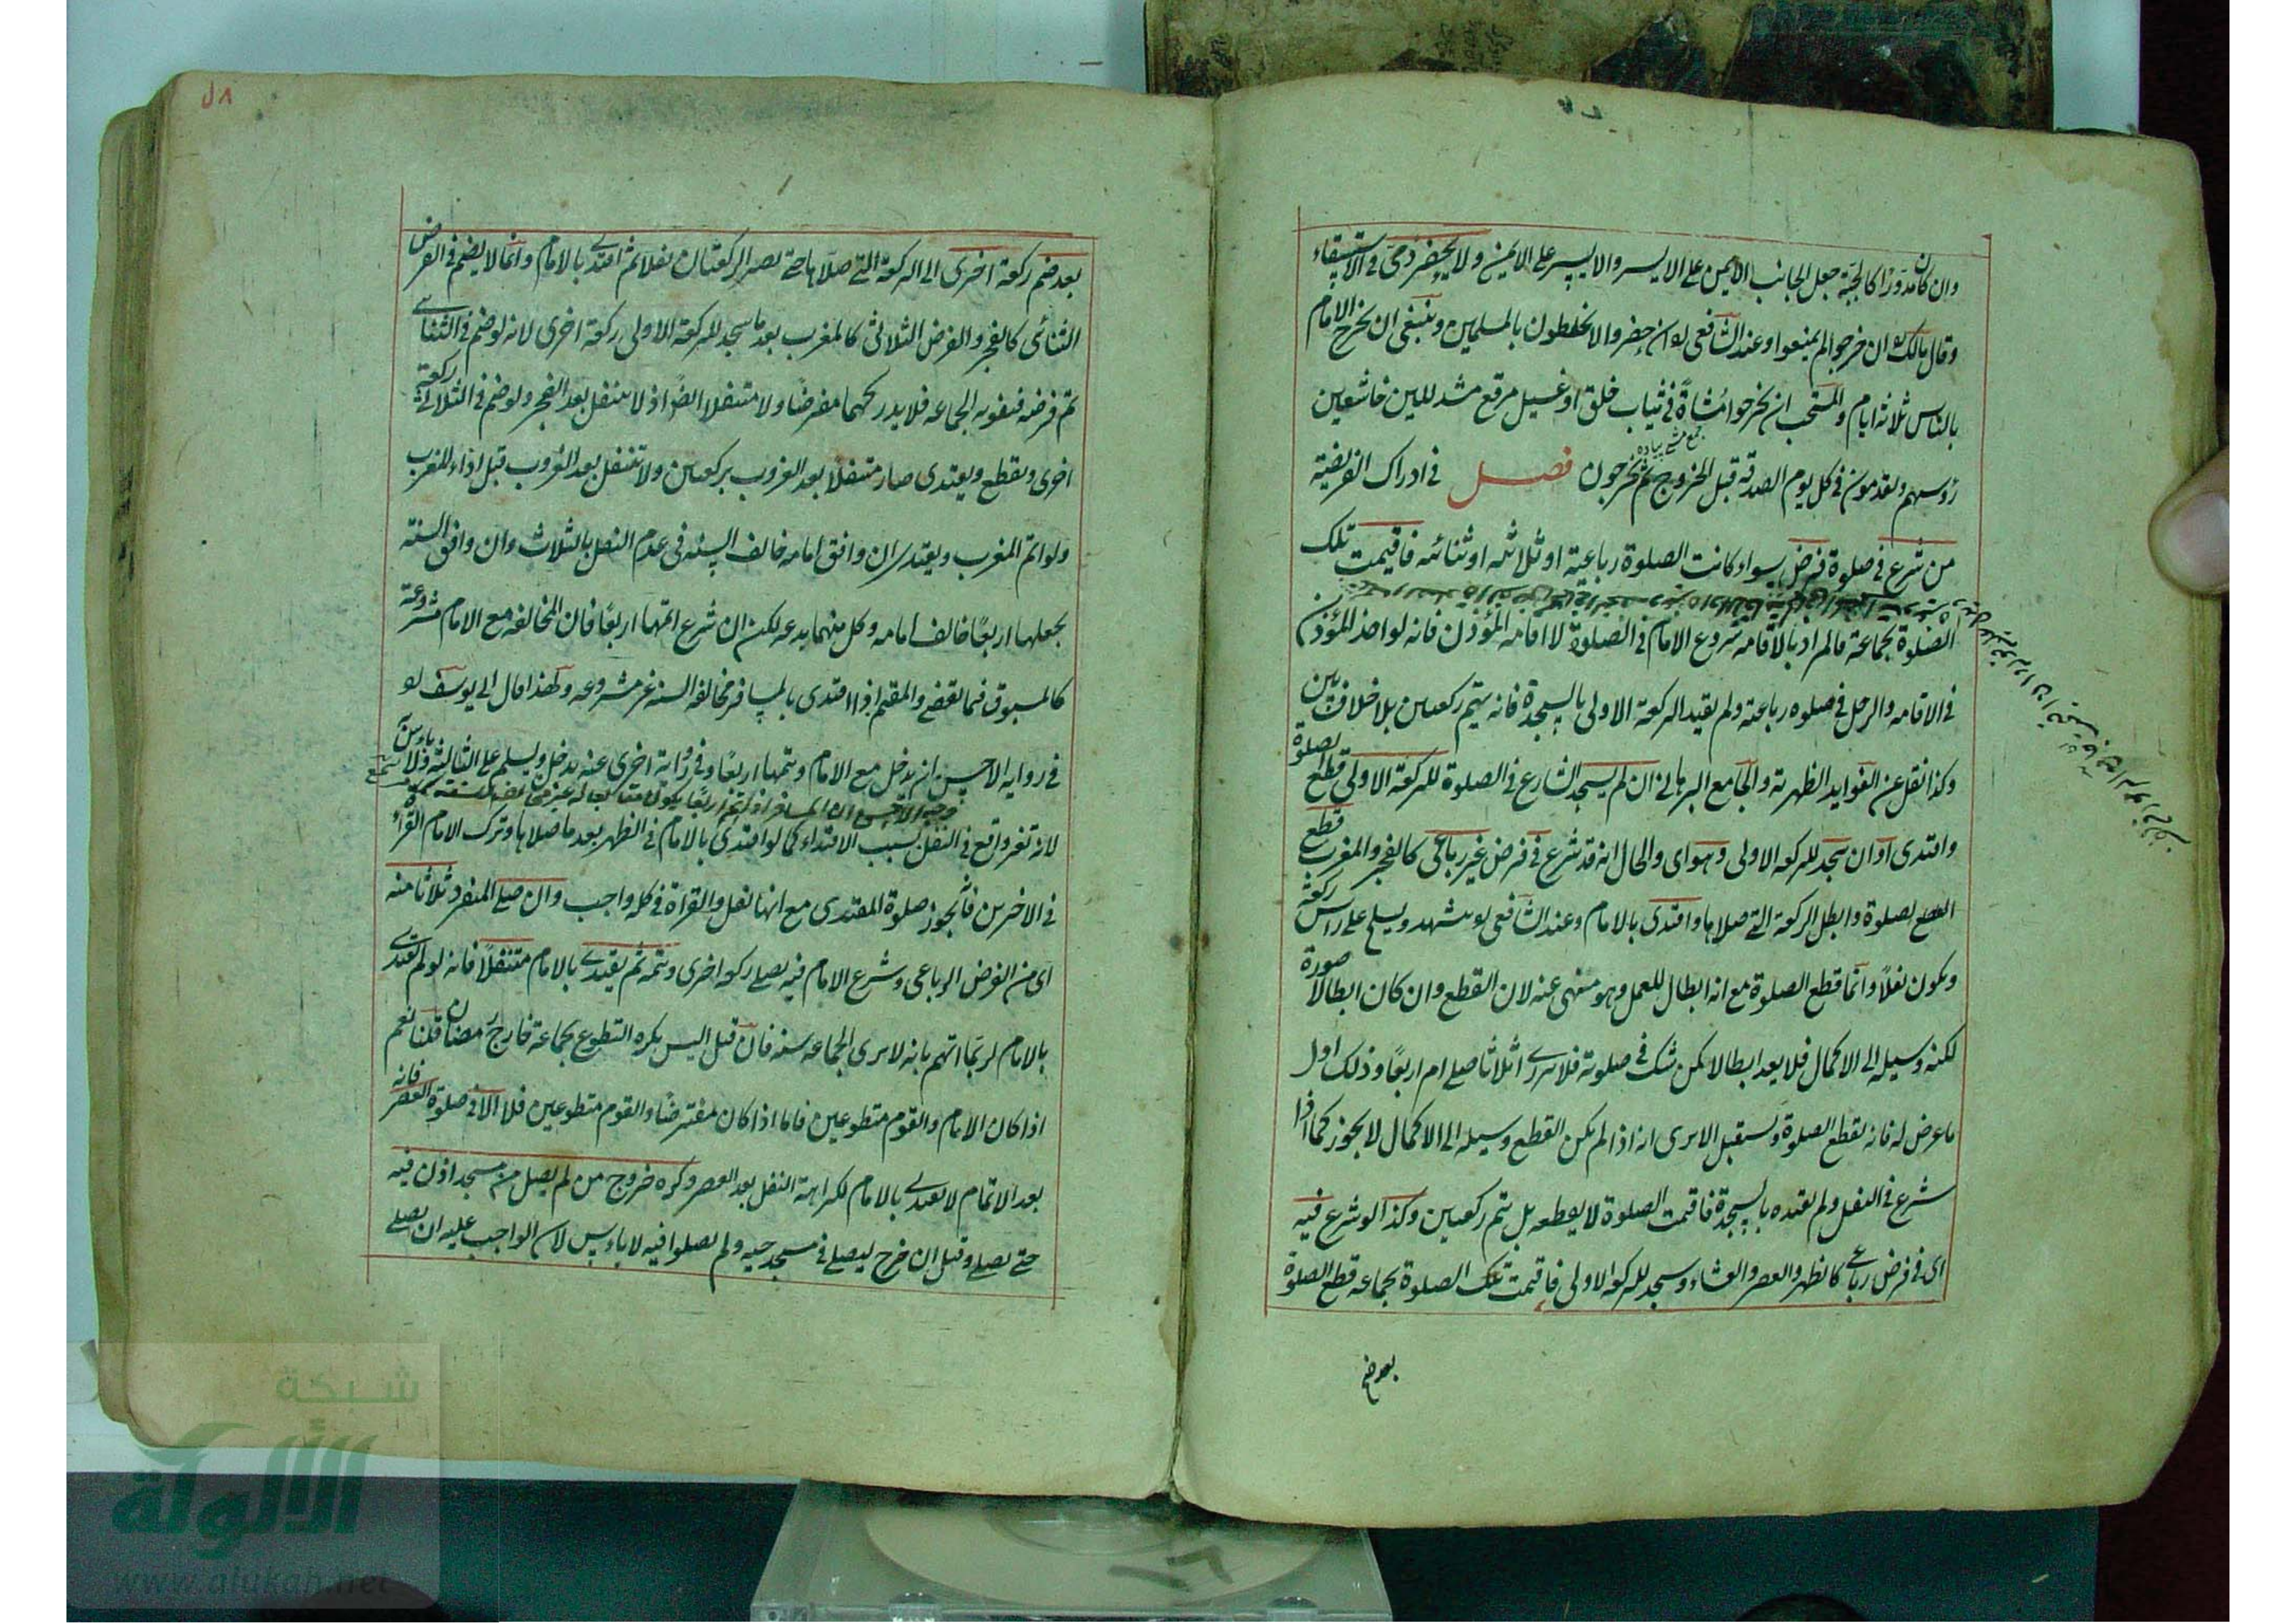 وان كان مدوّرا كالجبّة جعل الجانب الايمن على الايسر والايسر على الايمن ولا يحضر ذمى فى الاستسقاء
وقال مالك ان خرجوا لم يمنعوا وعند الشافعى لو ان حضروا لا يختلطون بالمسلمين وينبغى ان يخرج الامام
بالناس ثلاثة ايام والمستحب ان يخرجوا مشاة فى ثياب خلق او غسيل مرقع متذللين خاشعين
جمع مشى پياده
رؤسهم ويقدمون فى كل يوم الصدقة قبل الخروج ثم يخرجون فصل فى ادراك الفريضة
من شرع فى صلوة فرض سواء كانت الصلوة رباعية او ثلاثية او ثنائية فاقيمت تلك
الصلوة بجماعة فالمراد بالاقامة شروع الامام فى الصلوة لا اقامة المؤذن فانه لو اخذ المؤذن
فى الاقامة والرجل فى صلوة رباعية ولم يقيد الركعة الاولى بالسجدة فانه يتم ركعتين بلا خلاف بين
وكذا نقل عن الفوايد الظهيرية والجامع البرهانى ان لم يسجد الشارع فى الصلوة للركعة الاولى قطع الصلوة
واقتدى او ان سجد للركعة الاولى وهو اى والحال انه قد شرع فى فرض غير رباعى كالفجر والمغرب قطع
الصلوة وابطل الركعة التى صلاها واقتدى بالامام وعند الشافعى لو يتشهد ويسلم على راس ركعة
ويكون نفلا وانما قطع الصلوة مع انه ابطال للعمل وهو منهى عنه لان القطع وان كان ابطالا صورة
لكنه وسيلة الى الاكمال فلا يعد ابطالا كمن شك فى صلوته فلا يدرى اثلاثا صلى ام اربعا وذلك اول
ما عرض له فانه يقطع الصلوة ويستقبل الا يرى انه اذا لم يكن القطع وسيلة الى الاكمال لا يجوز كما اذا
شرع فى النفل ولم يقيده بالسجدة فاقيمت الصلوة لا يقطعه بل يتم ركعتين وكذا لو شرع فيه
اى فى فرض رباعى كالظهر والعصر والعشاء وسجد للركعة الاولى فاقيمت تلك الصلوة بجماعة قطع الصلوة
بعد ضم
٥٨
بعد ضم ركعة اخرى الى الركعة التى صلاها حتى يصير الركعتان نفلا ثم اقتدى بالامام وانما لا يضم فى الفرض
الثنائى كالفجر والفرض الثلاثى كالمغرب بعد ما سجد للركعة الاولى ركعة اخرى لانه لو ضم فى الثنائى
تم فرضه فتفوته الجماعة فلا يدركهما مفترضا ولا متنفلا ايضا اذ لا يتنفل بعد الفجر ولو ضم فى الثلاثى ركعة
اخرى ويقطع ويقتدى صار متنفلا بعد الغروب بركعتين ولا يتنفل بعد الغروب قبل اداء المغرب
ولو اتم المغرب ويقتدى ان وافق امامه خالف السنة فى عدم النفل بالثلاث وان وافق السنة
بجعلها اربعا خالف امامه وكل منهما بدعة لكن ان شرع اتمها اربعا فان المخالفة مع الامام مشروعة
كالمسبوق فيما يقضى والمقيم اذا اقتدى بالمسافر مخالفة السنة غير مشروعة ولهذا قال ابى يوسف لو
فى رواية الاحسن ان يدخل مع الامام ويتمها اربعا وفى رواية اخرى عنه يدخل ويسلم على الثالثة ولا باس
لانه تغير وقع فى النفل بسبب الاقتداء كما لو اقتدى بالامام فى الظهر بعد ما صلاها وترك الامام القراة
فى الاخرين فانه يجوز صلوة المقتدى مع انها نفل والقراة فى كله واجب وان صلى المنفرد ثلاثا منه
اى من الفرض الرباعى وشرع الامام فيه يصلى ركعة اخرى ويتمه ثم يقتدى بالامام متنفلا فانه لو لم يقتد
بالامام لربما اتهم بانه لا يرى الجماعة سنة فان قيل اليس يكره التطوع بجماعة خارج رمضان قلنا نعم
اذا كان الامام والقوم متطوعين فاما اذا كان مفترضا والقوم متطوعين فلا الا فى صلوة العصر فانه
بعد الاتمام لا يقتدى بالامام لكراهة النفل بعد العصر وكره خروج من لم يصل من مسجد اذن فيه
حتى يصلى وقيل ان خرج ليصلى فى مسجد حيه ولم يصلوا فيه لا باس لان الواجب عليه ان يصلى
شبكة
الألوكة
www.alukah.net